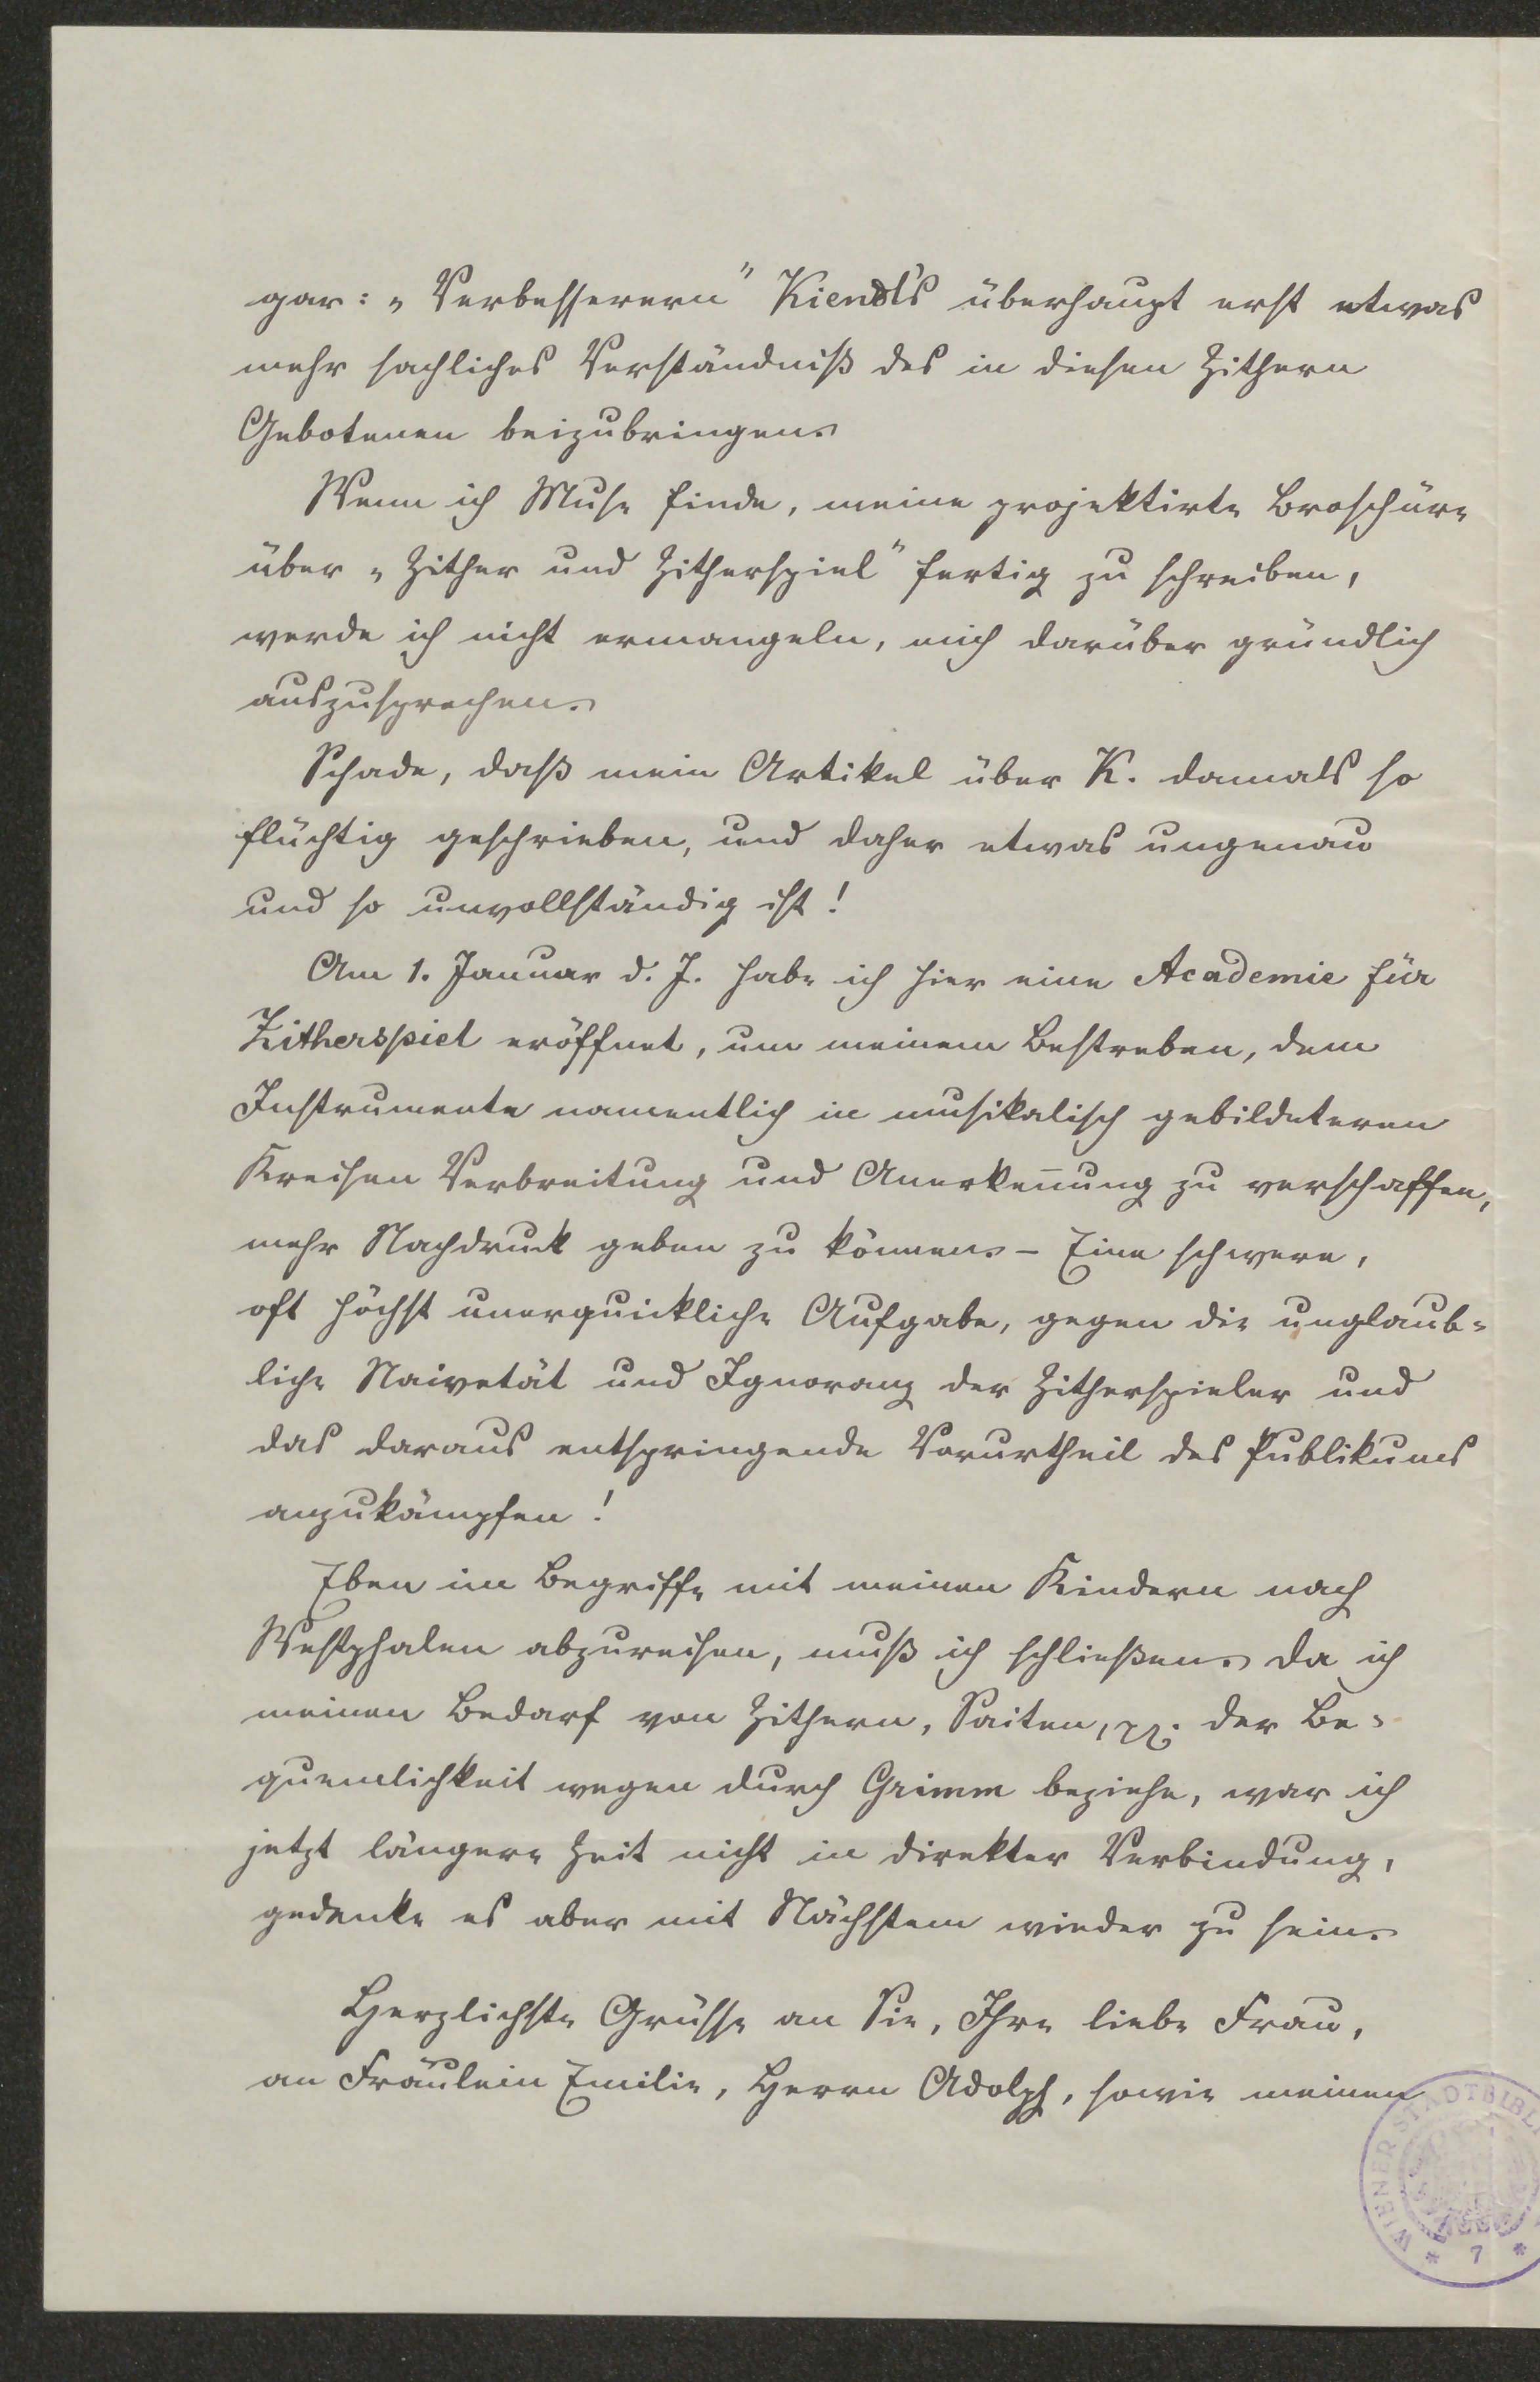 gar: „Verbesserern" Kiendl's überhaupt erst etwas
mehr sachliches Verständniß des in diesen Zithern
Gebotenen beizubringen.
Wenn ich Muse finde, meine projektirte Broschüre
über „Zither und Zitherspiel" fertig zu schreiben,
werde ich nicht ermangeln, mich darüber gründlich
auszusprechen.
Schade, daß mein Artikel über K. damals so
flüchtig geschrieben, und daher etwas ungenau
und so unvollständig ist!
Am 1. Januar d. J. habe ich hier eine Academie für
Zitherspiel eröffnet, um meinem Bestreben, dem
Instrumente namentlich in musikalisch gebildeteren
Kreisen Verbreitung und Anerkeñung zu verschaffen,
mehr Nachdruck geben zu können. – Eine schwere,
oft höchst unerquickliche Aufgabe, gegen die unglaub-
liche Naivetät und Ignoranz der Zitherspieler und
das daraus entspringende Vorurtheil des Publikums
anzukämpfen!
Eben im Begriffe mit meinen Kindern nach
Westphalen abzureisen, muß ich schließen. Da ich
meinen Bedarf von Zithern, Saiten, pp. der Be-
quemlichkeit wegen durch Grimm beziehe, war ich
jetzt längere Zeit nicht in direkter Verbindung,
gedenke es aber mit Nächstem wieder zu sein.
Herzlichste Grüsse an Sie, Ihre liebe Frau,
an Fräulein Emilie, Herrn Adolph, sowie meinen
WIENER STADTBIBLI
* 7 *